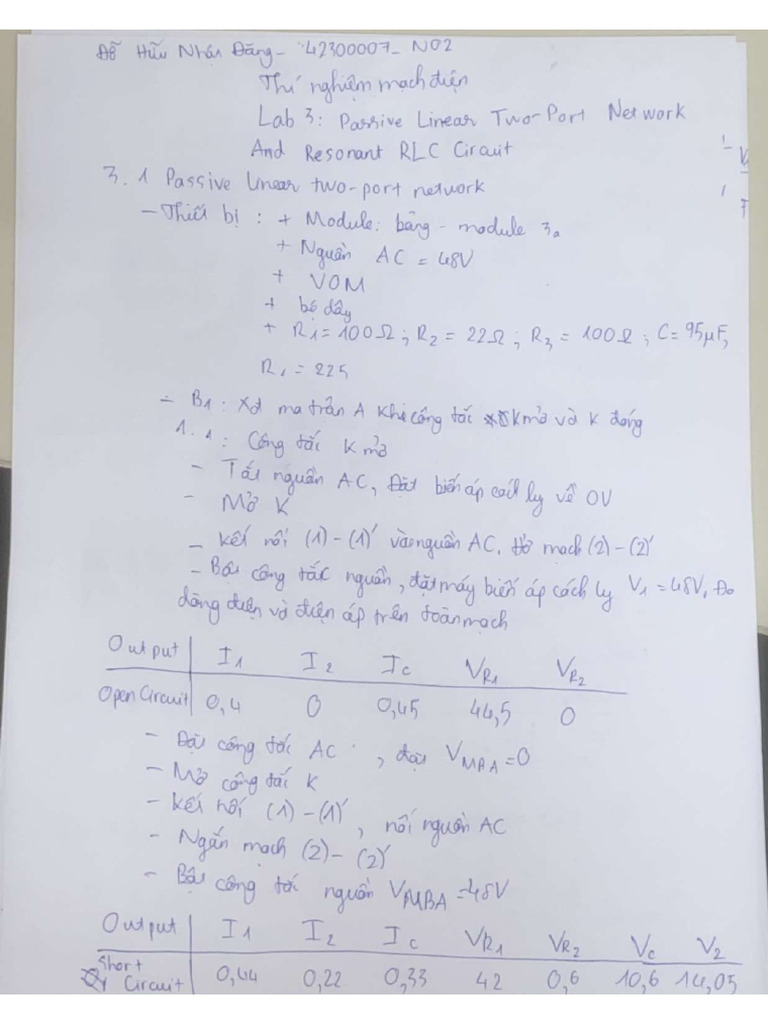 Đỗ Hữu Nhân Đăng - 42300007 - N02
Thí nghiệm mạch điện
Lab 3: Passive Linear Two-Port Network
And Resonant RLC Circuit
3.1 Passive linear two-port network
- Thiết bị : + Module: bảng - module 3a
+ Nguồn AC = 48V
+ VOM
+ bó dây
+ R1 = 100Ω ; R2 = 22Ω ; R3 = 100Ω ; C = 95μF,
= 225
- B1 : Xđ ma trận A khi công tắc K mở và K đóng
1.1 : Công tắc K mở
- Tắt nguồn AC, Đặt biến áp cách ly về 0V
- Mở K
- Kết nối (1) - (1)' vào nguồn AC. Hở mạch (2) - (2)'
- Bật công tắc nguồn, đặt máy biến áp cách ly V1 = 48V. Đo
dòng điện và điện áp trên toàn mạch
Output I1 I2 Ic VR1 VR2
Open Circuit 0,4 0 0,45 44,5 0
- công tắc AC , đặt VMBA = 0
- Mở công tắc K
- Kết nối (1) - (1)', nối nguồn AC
- Ngắn mạch (2) - (2)'
- Bật công tắc nguồn VMBA = 48V
Output I1 I2 Ic VR1 VR2 Vc V2
Short Circuit 0,44 0,22 0,33 42 0,6 10,6 14,05